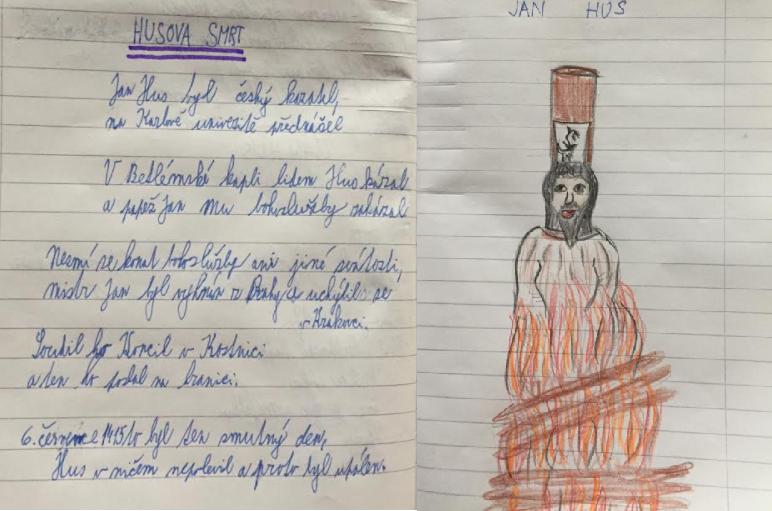 HUSOVA SMRT
Jan Hus byl český kazatel,
na Karlově univezitě přednášel
V Betlémské kapli lidem Hus kázal
a papež Jan mu bohoslužby zakázal
Nesmí se konat bohoslužby ani jiné svátosti,
mistr Jan byl vyhnán z Prahy a uchýlil se
v Krakovci.
Soudil ho Koncil v Kostnici
a ten ho poslal na hranici.
6. července 1415 to byl ten smutný den,
Hus v ničem nepolevil a proto byl upálen.
JAN HUS